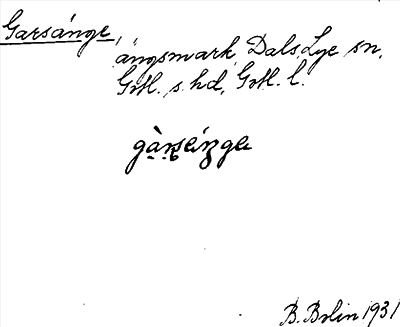 Garsänge,
ängsmark, Dals Lye sn,
Gotl. s. hd, Gotl. l.
B. Bolin 1931